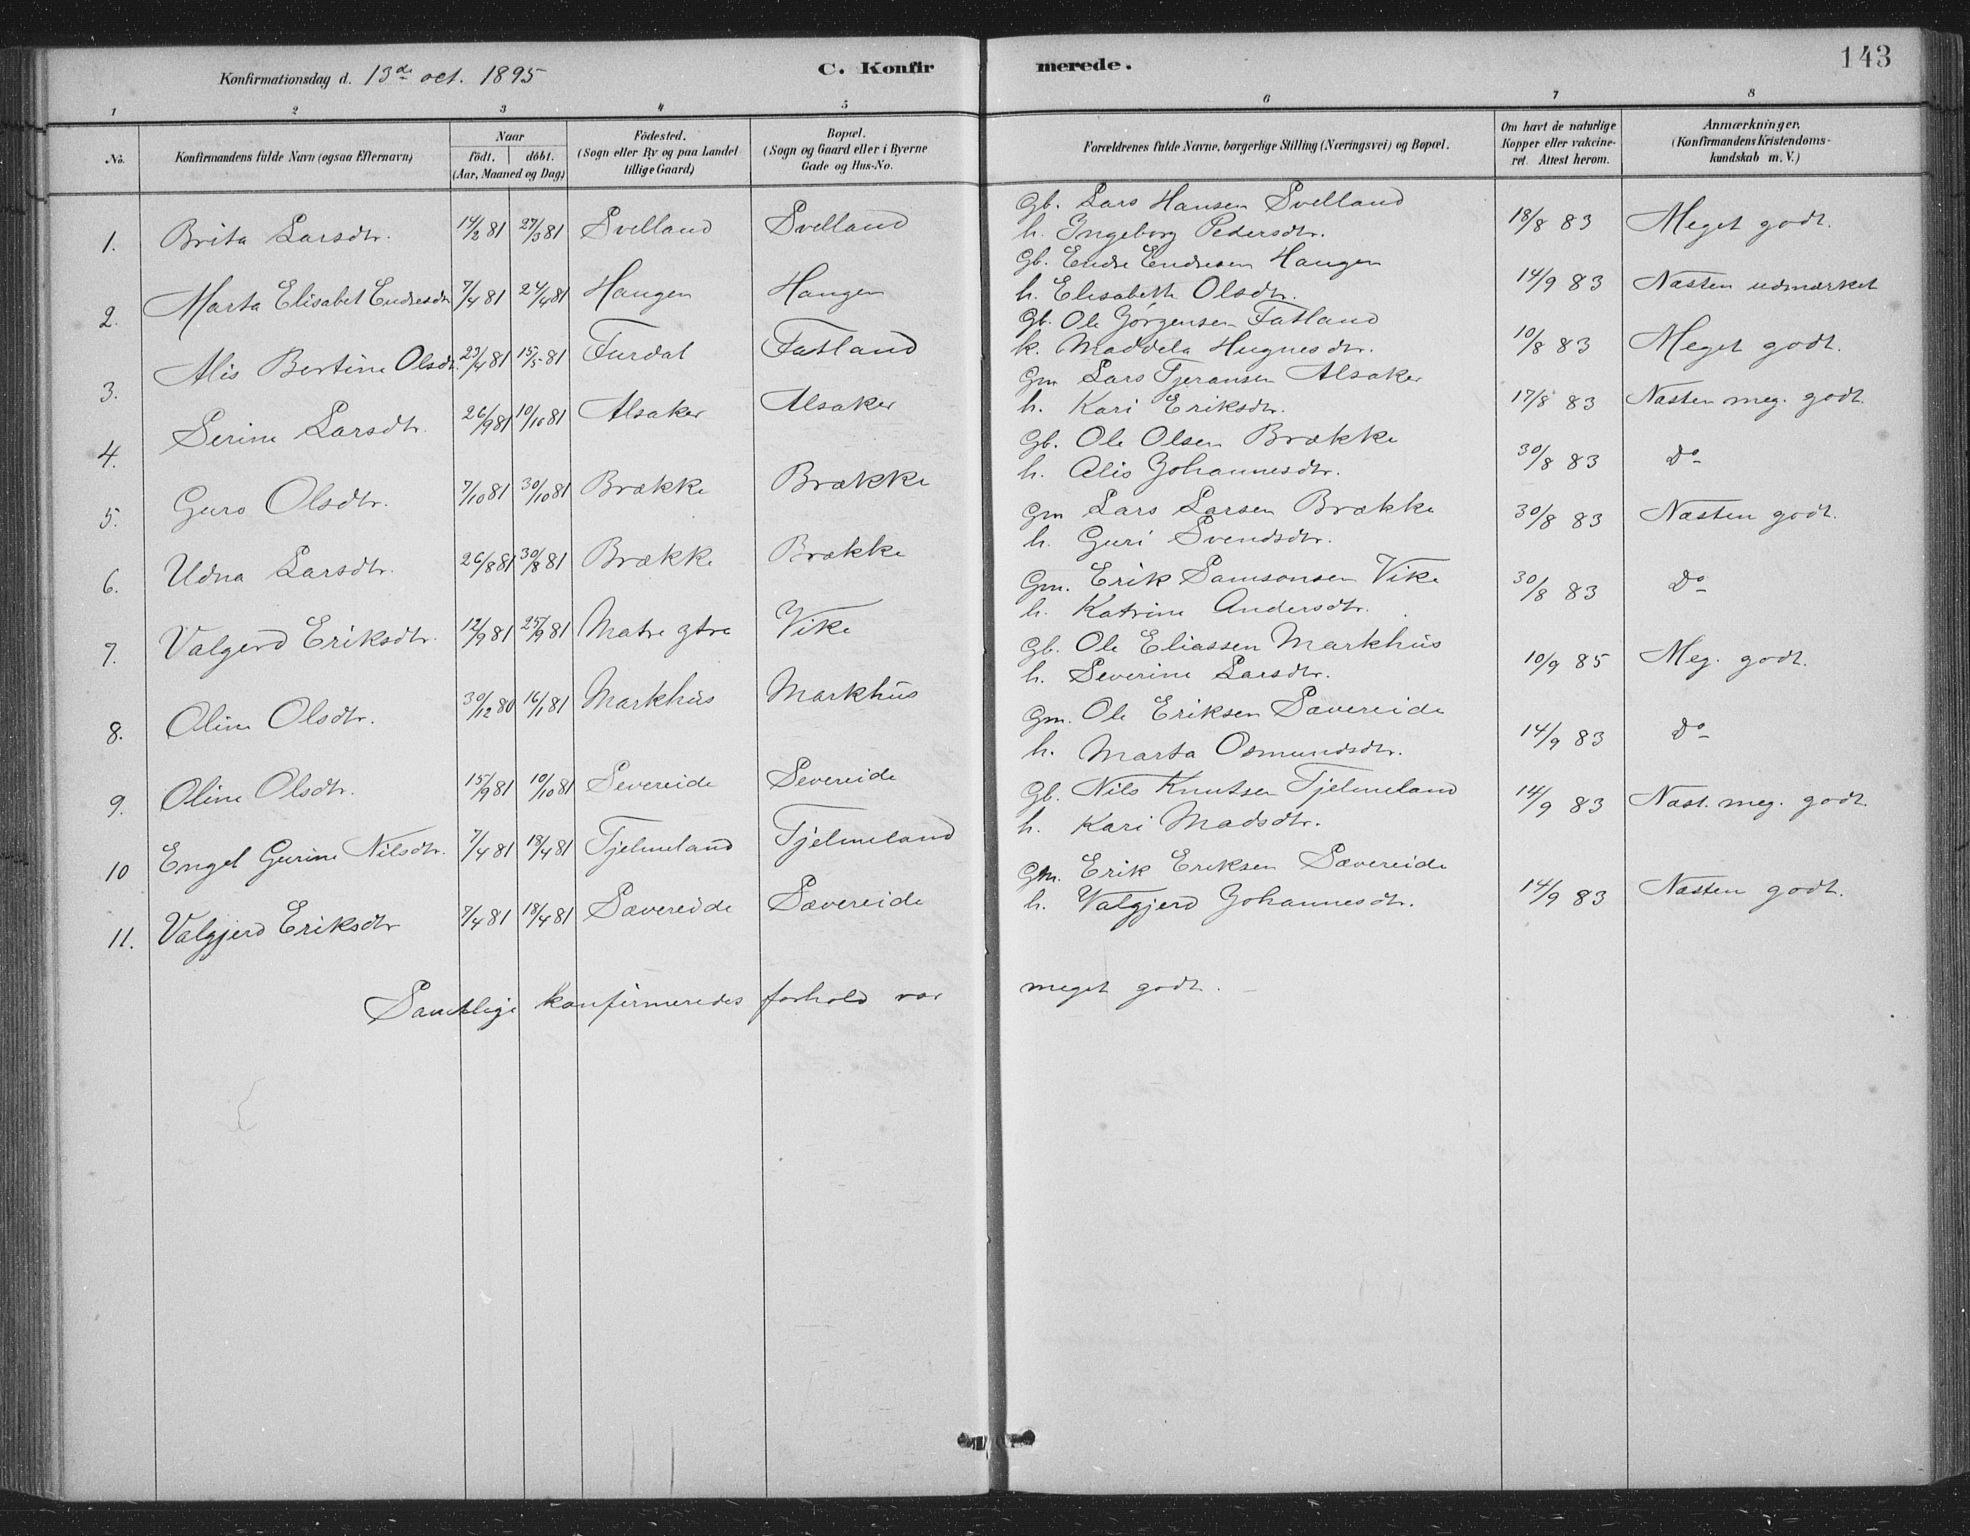 143
Konfirmationsdag d. 13de oct. 1895 C. Konfirmerede.
1 2 3 4 5 6 7 8
No. Konfirmandens fulde Navn (ogsaa Efternavn) Naar født. døbt. (Aar, Maaned og Dag) Fødested. (Sogn eller By og paa Landet tillige Gaard) Bopæl. (Sogn og Gaard eller i Byerne Gade og Hus-No. Forældrenes fulde Navne, borgerlige Stilling (Næringsvei) og Bopæl. Om havt de naturlige Kopper eller vakcineret. Attest herom. Anmærkninger. (Konfirmandens Kristendomskundskab m. V.)
1. Brita Larsdtr. 14/2 81 27/3 81 Svelland Svelland Gb. Lars Hansen Svelland 18/8 83 Meget godt.
h. Ingeborg Pedersdtr.
2. Marta Elisabet Endresdtr 7/4 81 24/4 81 Haugen Haugen Gb. Endre Endresen Haugen 14/9 83 Næsten udmærket
h. Elisabeth Olsdtr.
3. Alis Bertine Olsdtr. 23/4 81 15/5 81 Furdal Fatland Gb. Ole Jørgensen Fatland 10/8 83 Meget godt.
k. Maddela Hugnesdtr.
4. Serine Larsdtr. 26/9 81 10/10 81 Alsaker Alsaker Gm Lars Tjeransen Alsaker 17/8 83 Næsten meg. godt.
h. Kari Eriksdtr.
5. Guro Olsdtr. 7/10 81 30/10 81 Brække Brække Gb. Ole Olsen Brække 30/8 83 Do
h. Alis Johannesdtr.
6. Udna Larsdtr. 26/8 81 30/8 81 Brække Brække Gm Lars Larsen Brække 30/8 83 Næsten godt.
h. Guri Svendsdtr.
7. Valgerd Eriksdtr. 12/9 81 25/9 81 Matre ytre Vike Gm. Erik Samsonsen Vike 30/8 83 Do
h. Katrine Andersdtr.
8. Oline Olsdtr. 30/12 80 16/1 81 Markhus Markhus Gb. Ole Eliassen Markhus 10/9 85 Meg. godt.
h. Severine Larsdtr.
9. Oline Olsdtr. 15/9 81 10/10 81 Severeide Severeide Gm. Ole Eriksen Sævereide 14/9 83 Do
h. Marta Osmundsdtr.
10 Engel Gurine Nilsdtr. 7/4 81 18/4 81 Tjelmeland Tjelmeland Gb. Nils Knutsen Tjelmeland 14/9 83 Næst. meg. godt.
h. Kari Madsdtr.
11. Valgjerd Eriksdtr 7/4 81 18/4 81 Sævereide Sævereide Gm. Erik Eriksen Sævereide 14/9 83 Næsten godt.
h. Valgjerd Johannesdtr.
Samtlige konfirmeredes forhold var meget godt.